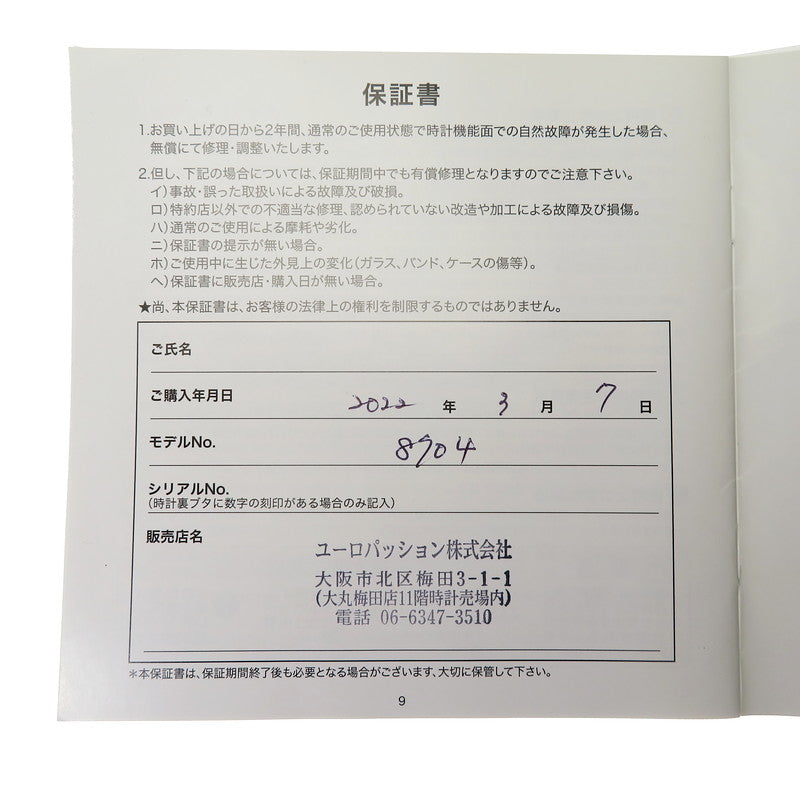 保証書
1.お買い上げの日から2年間、通常のご使用状態で時計機能面での自然故障が発生した場合、
無償にて修理・調整いたします。
2.但し、下記の場合については、保証期間中でも有償修理となりますのでご注意下さい。
イ)事故・誤った取扱いによる故障及び破損。
ロ)特約店以外での不適当な修理、認められていない改造や加工による故障及び損傷。
ハ)通常のご使用による摩耗や劣化。
ニ)保証書の提示が無い場合。
ホ)ご使用中に生じた外見上の変化(ガラス、バンド、ケースの傷等)。
ヘ)保証書に販売店・購入日が無い場合。
★尚、本保証書は、お客様の法律上の権利を制限するものではありません。
ご氏名
ご購入年月日 2022 年 3 月 7 日
モデルNo. 8904
シリアルNo.
(時計裏ブタに数字の刻印がある場合のみ記入)
販売店名
ユーロパッション株式会社
大阪市北区梅田3-1-1
(大丸梅田店11階時計売場内)
電話 06-6347-3510
*本保証書は、保証期間終了後も必要となる場合がございます、大切に保管して下さい。
9